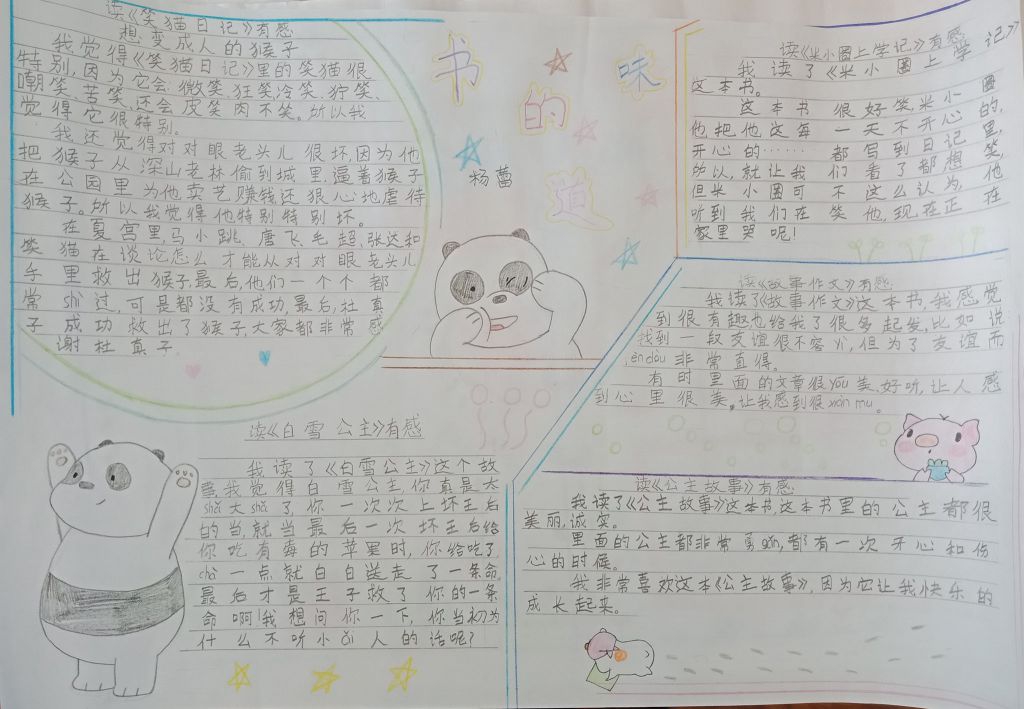 读《笑猫日记》有感
想变成人的猴子
我觉得《笑猫日记》里的笑猫很
特别,因为它会微笑、狂笑、冷笑、狞笑、
嘲笑、苦笑、还会皮笑肉不笑。所以我
觉得它很特别。
我还觉得对对眼老头儿很坏,因为他
把猴子从深山老林偷到城里,逼着猴子
在公园里为他卖艺赚钱还狠心地虐待
猴子。所以我觉得他特别特别坏。
在夏宫里,马小跳、唐飞、毛超、张达和
笑猫在谈论怎么才能从对对眼老头儿
手里救出猴子,最后,他们一个个都
常shì过,可是都没有成功,最后,杜真
子成功救出了猴子,大家都非常感
谢杜真子。
书的味道
杨蕾
读《米小圈上学记》有感
我读了《米小圈上学记》
这本书。
这本书很好笑,米小圈
他把他这每一天不开心的,
开心的……都写到日记里,
所以,就让我们看了都想笑,
但米小圈可不这么认为,他
听到我们在笑他,现在正在
家里哭呢!
读《故事作文》有感
我读了《故事作文》这本书,我感觉
到很有趣,也给我了很多起发,比如说
找到一段友谊很不容yì,但为了友谊而
fèndòu非常直得。
有时里面的文章很yōu美、好听,让人感
到心里很美。让我感到很xiàn mù。
读《白雪公主》有感
我读了《白雪公主》这个故
事,我觉得白雪公主你真是太
shǎ太shǎ了,你一次次上坏王后
的当,就当最后一次坏王后给
你吃有毒的苹果时,你给吃了,
chà一点就白白送走了一条命,
最后才是王子救了你的一条
命啊!我想问你一下,你当初为
什么不听小ǎi人的话呢?
读《公主故事》有感
我读了《公主故事》这本书,这本书里的公主都很
美丽,诚实。
里面的公主都非常勇gǎn,都有一次开心和伤
心的时候。
我非常喜欢这本《公主故事》,因为它让我快乐的
成长起来。